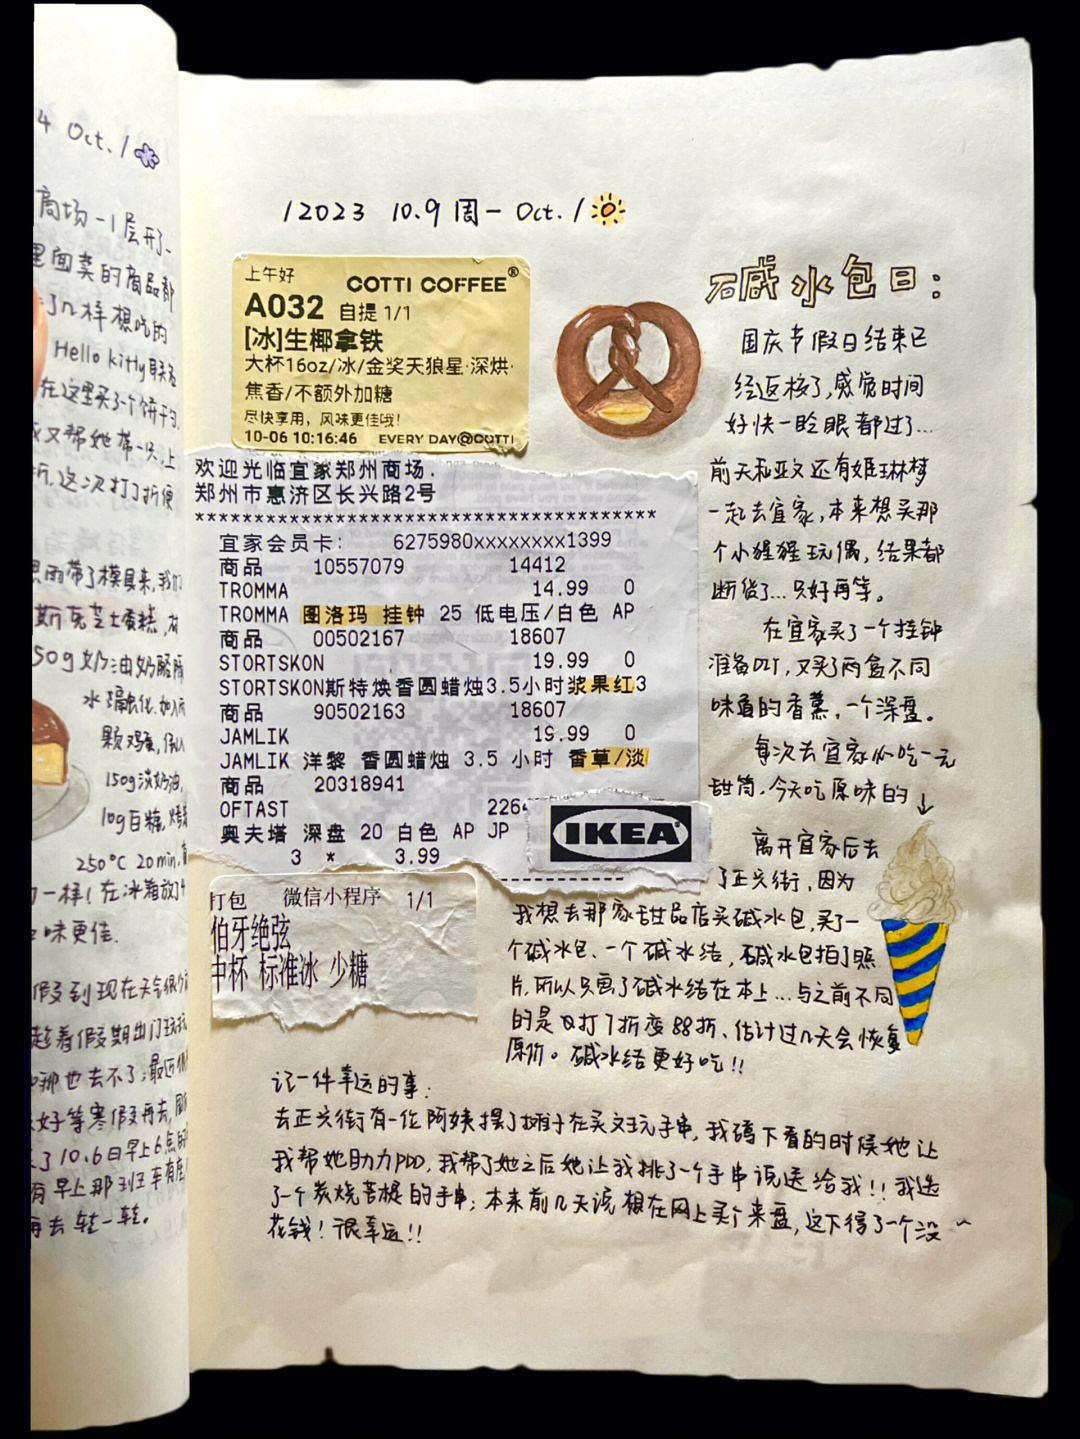 4 Oct. /
商场一1层开了一
里面卖的商品都
了几样想吃的
Hello kitty联名
在这里买了个饼干的,
我又帮她带一次,上
折,这次打了折便
思雨带了模具来,我们
斯克芝士蛋糕,
50g奶油奶酪隔
水融化,加入两
颗鸡蛋,
150g淡奶油,
10g白糖,烤箱
250°C 20min,
一样!在冰箱放了
味更佳.
假到现在天气很
趁着假期出门玩
哪也去不了;最近
好等寒假再去,
了10.6日早上6点的
早上那班车有座
再去转一转。
/2023 10.9 周一 Oct. /
上午好
COTTI COFFEE®
A032 自提 1/1
[冰]生椰拿铁
大杯16oz/冰/金奖天狼星·深烘·
焦香/不额外加糖
尽快享用，风味更佳哦!
10-06 10:16:46 EVERY DAY@COTTI
欢迎光临宜家郑州商场.
郑州市惠济区长兴路2号
***************************************
宜家会员卡: 6275980xxxxxxxx1399
商品 10557079 14412
TROMMA 14.99 0
TROMMA 图洛玛 挂钟 25 低电压/白色 AP
商品 00502167 18607
STORTSKON 19.99 0
STORTSKON斯特焕香圆蜡烛3.5小时浆果红3
商品 90502163 18607
JAMLIK 19.99 0
JAMLIK 洋黎 香圆蜡烛 3.5 小时 香草/淡
商品 20318941
OFTAST 2264
奥夫塔 深盘 20 白色 AP JP
3 * 3.99
IKEA
打包 微信小程序 1/1
伯牙绝弦
中杯 标准冰 少糖
碱水包日:
国庆节假日结束已
经返校了,感觉时间
好快一眨眼都过了...
前天和亚文还有姬琳梦
一起去宜家,本来想买那
个小猩猩玩偶,结果都
断货了...只好再等。
在宜家买了一个挂钟
准备DIY,又买了两盒不同
味道的香薰,一个深盘。
每次去宜家必吃一元
甜筒,今天吃原味的↓
离开宜家后去
了正兴街,因为
我想去那家甜品店买碱水包,买了一
个碱水包、一个碱水结,碱水包拍了照
片,所以只画了碱水结在本上...与之前不同
的是从打7折变88折、估计过几天会恢复
原价。碱水结更好吃!!
记一件幸运的事:
去正兴街有一位阿姨摆了摊子在卖文玩手串,我蹲下看的时候她让
我帮她助力PDD,我帮了她之后她让我挑了一个手串说送给我!!我选
了一个炭烧菩提的手串;本来前几天说想在网上买个来盘,这下得了一个没
花钱!很幸运!!